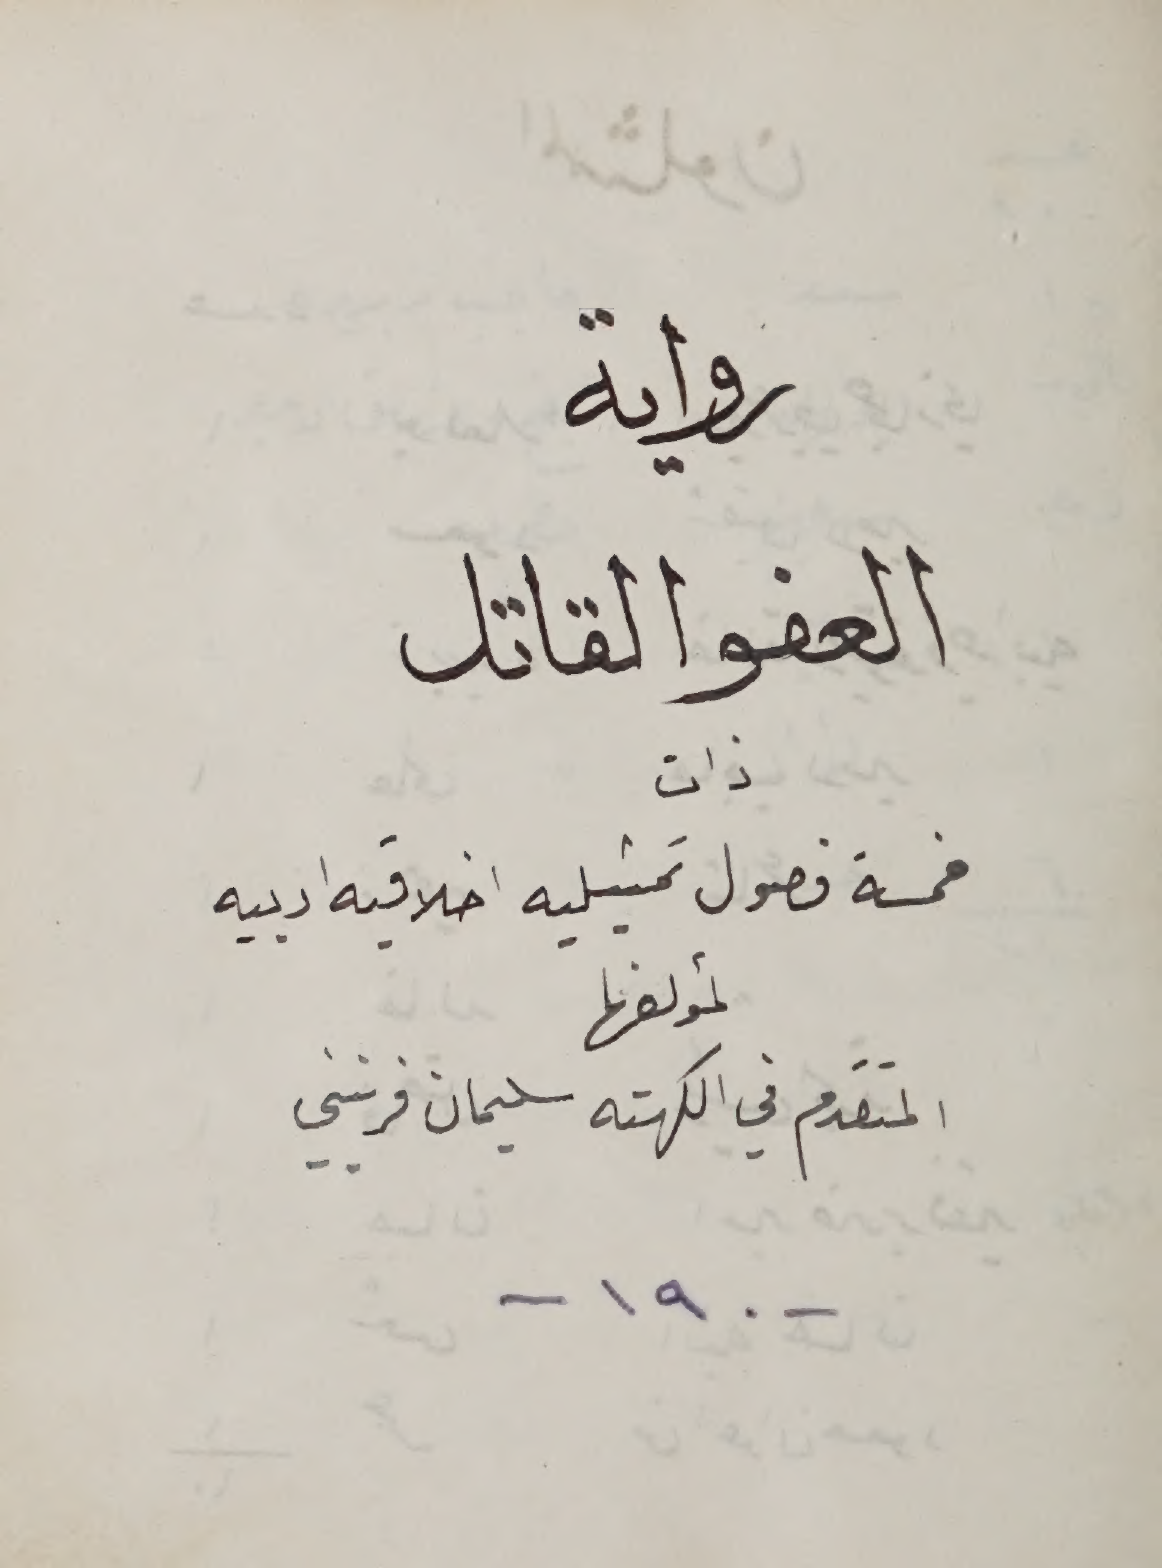 رواية
العفو القاتل
ذات
خمسة فصول تمثيليه اخلاقيه ادبيه
لمؤلفها
المتقدم في الكهنه سليمان فرنيني
- ١٩٠ -